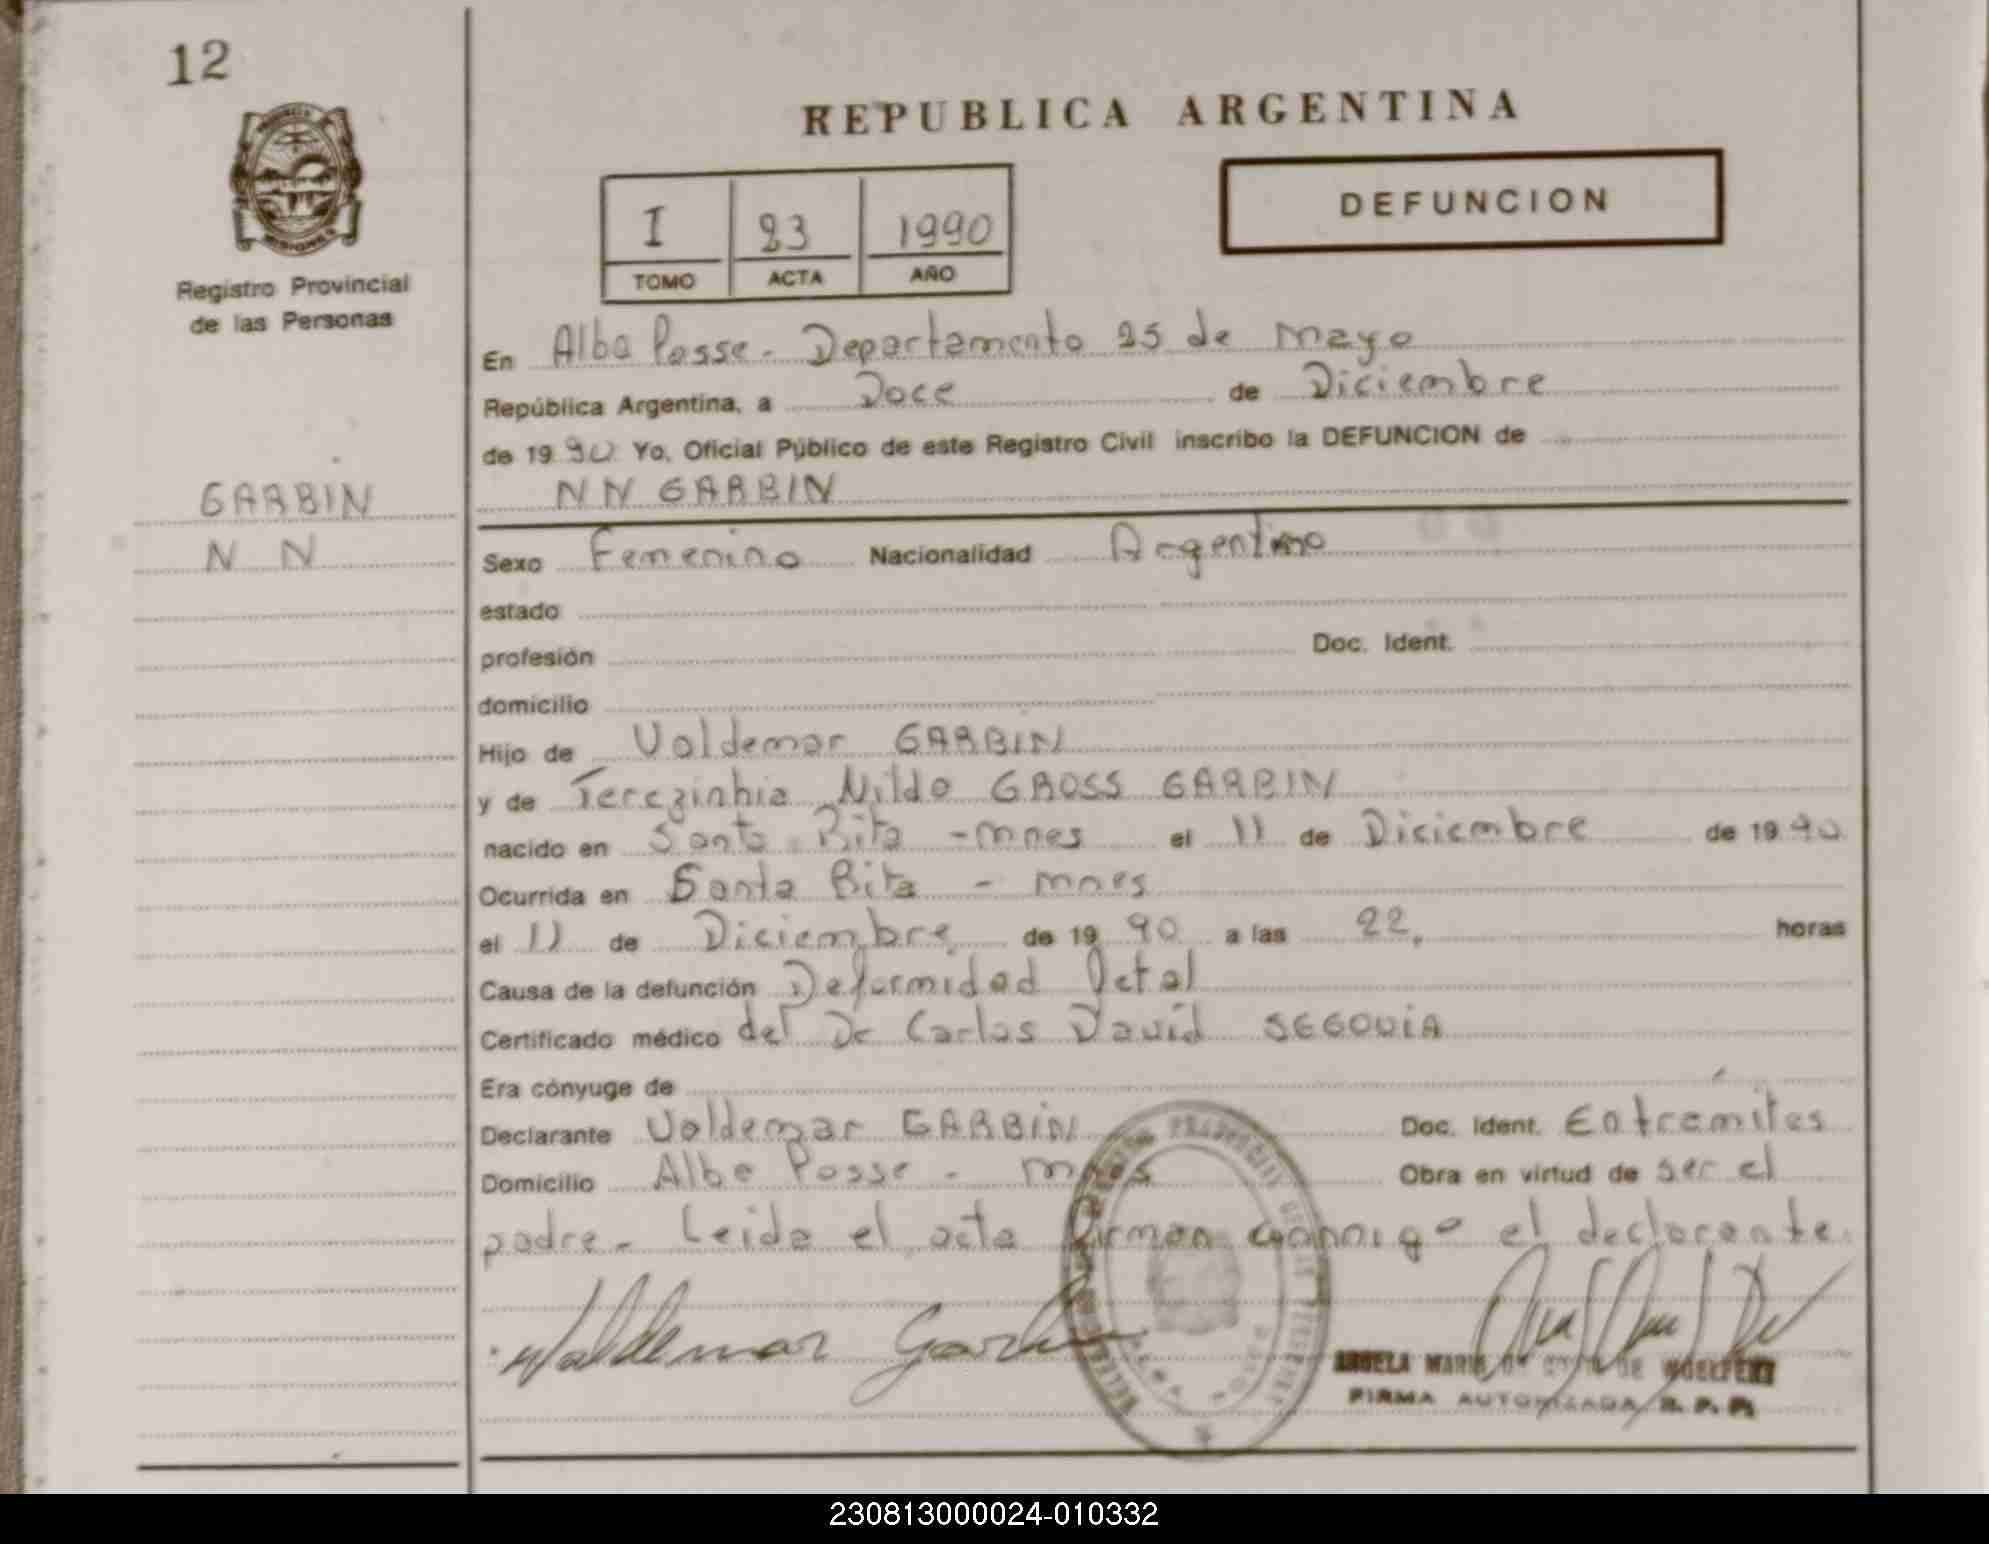 12
REPUBLICA ARGENTINA
DEFUNCION
I 23 1990
TOMO ACTA AÑO
Registro Provincial
de las Personas
En Alba Posse - Departamento 25 de Mayo
República Argentina, a Doce de Diciembre
de 19 90 Yo, Oficial Público de este Registro Civil inscribo la DEFUNCION de
GARBIN
N N GARBIN
N N
Sexo Femenino Nacionalidad Argentino
estado
profesión Doc. Ident.
domicilio
Hijo de Valdemar GARBIN
y de Terezinhia Nilda GROSS GARBIN
nacido en Santa Rita - mnes el 11 de Diciembre de 19 90
Ocurrida en Santa Rita - mnes
el 11 de Diciembre de 19 90 a las 22, horas
Causa de la defunción Deformidad Fetal
Certificado médico del Dr Carlos David SEGOVIA
Era cónyuge de
Declarante Valdemar GARBIN Doc. Ident. Entramites
Domicilio Alba Posse - mnes Obra en virtud de ser el
padre - Leida el acta Firman conmigo el declarante
Valdemar Garbin
MARIA DE
FIRMA AUTORIZADA R. P. P.
230813000024-010332